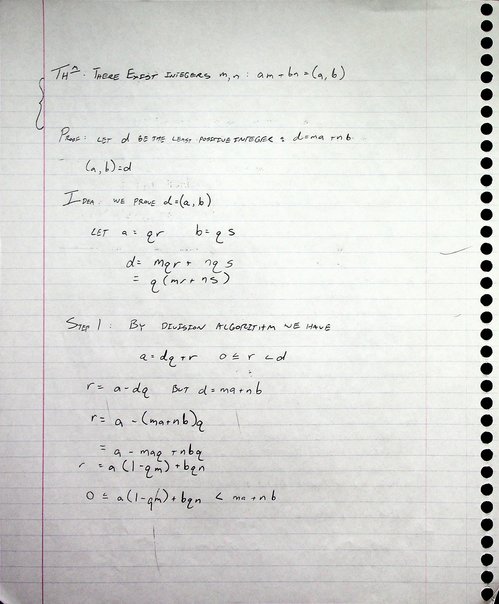 THM: THERE EXIST INTEGERS m,n : am + bn = (a, b)
PROOF: LET d BE THE LEAST POSITIVE INTEGER : d=ma+nb.
(a, b)=d
IDEA: WE PROVE d=(a, b)
LET a = qr b = q s
d= mqr + nq s
= q (mr + ns)
STEP 1: BY DIVISION ALGORITHM WE HAVE
a = dq + r 0 ≤ r < d
r = a - dq BUT d = ma + nb
r = a - (ma+nb)q
= a - maq + nbq
r = a (1-qm) + bqn
0 ≤ a (1-qm) + bqn < ma + nb